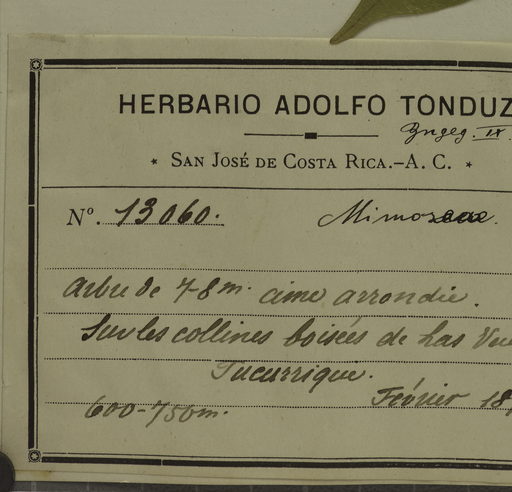 HERBARIO ADOLFO TONDUZ
IX
* SAN JOSÉ DE COSTA RICA.-A. C. *
Nº. 13060. Mimoseae.
Arbre de 7-8 m. cime arrondie.
Sur les collines boisées de Las Vue
Tucurrique.
Février 18
600-750m.